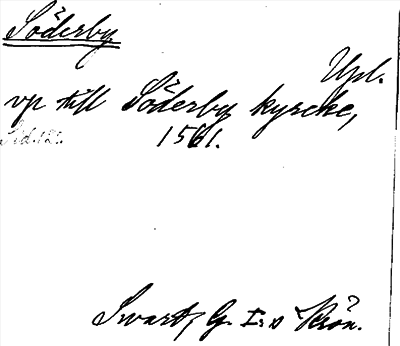 Söderby
Upl.
vp till Söderby kyrcke,
1561.
Swart, G. I:s Krön.